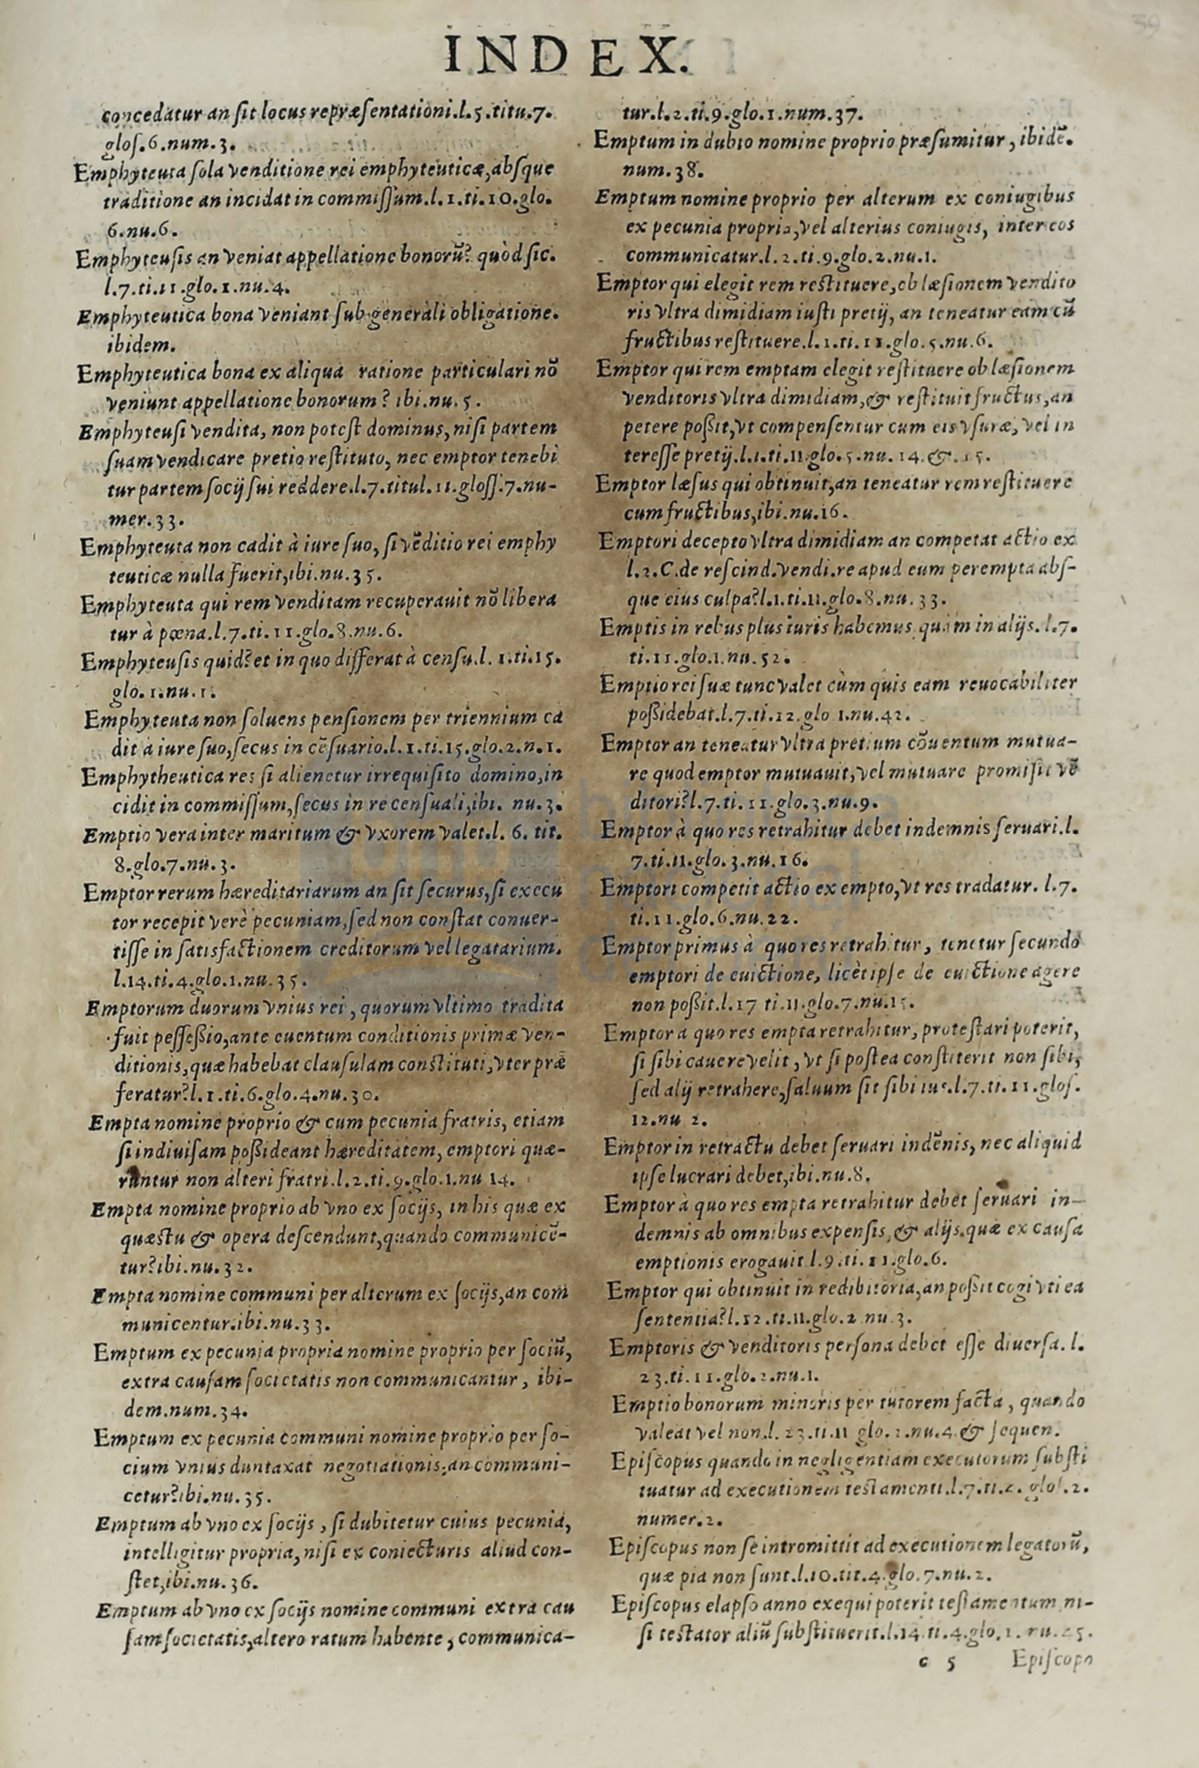 39
INDEX.
concedatur an ſit locus repræſentationi.l.5.titu.7.
gloſ.6.num.3.
Emphyteuta ſola venditione rei emphyteuticæ,abſque
traditione an incidat in commiſſum.l.1.ti.10.glo.
6.nu.6.
Emphyteuſis an veniat appellatione bonorũ? quòd ſic.
l.7.ti.11.glo.1.nu.4.
Emphyteutica bona veniant ſub generali obligatione.
ibidem.
Emphyteutica bona ex aliqua ratione particulari nõ
veniunt appellatione bonorum? ibi.nu.5.
Emphyteuſi vendita, non poteſt dominus, niſi partem
ſuam vendicare pretio reſtituto, nec emptor tenebi
tur partem ſocij ſui reddere.l.7.titul.11.gloſſ.7.nu-
mer.33.
Emphyteuta non cadit à iure ſuo, ſi vẽditio rei emphy
teuticæ nulla fuerit,ibi.nu.35.
Emphyteuta qui rem venditam recuperauit nõ libera
tur à pœna.l.7.ti.11.glo.8.nu.6.
Emphyteuſis quid? et in quo differat à cenſu.l. 1.ti.15.
glo.1.nu.1.
Emphyteuta non ſoluens penſionem per triennium ca
dit à iure ſuo,ſecus in cẽſuario.l.1.ti.15.glo.2.n.1.
Emphytheutica res ſi alienetur irrequiſito domino,in
cidit in commiſſum,ſecus in re cenſuali,ibi. nu.3.
Emptio vera inter maritum & vxorem valet.l. 6. tit.
8.glo.7.nu.3.
Emptor rerum hæreditariarum an ſit ſecurus,ſi execu
tor recepit verè pecuniam,ſed non conſtat conuer-
tiſſe in ſatisfactionem creditorum vel legatarium.
l.14.ti.4.glo.1.nu.35.
Emptorum duorum vnius rei, quorum vltimo tradita
fuit poſſeßio,ante euentum conditionis primæ ven-
ditionis,quæ habebat clauſulam conſtituti,vter præ
feratur?l.1.ti.6.glo.4.nu.30.
Empta nomine proprio & cum pecunia fratris, etiam
ſi indiuiſam poßideant hæreditatem, emptori quæ-
runtur non alteri fratri.l.2.ti.9.glo.1.nu 14.
Empta nomine proprio ab vno ex ſocijs, in his quæ ex
quæſtu & opera deſcendunt,quando communicẽ-
tur?ibi.nu.32.
Empta nomine communi per alterum ex ſocijs,an com
municentur.ibi.nu.33.
Emptum ex pecunia propria nomine proprio per ſociũ,
extra cauſam ſocietatis non communicantur, ibi-
dem.num.34.
Emptum ex pecunia communi nomine proprio per ſo-
cium vnius duntaxat negotiationis,an communi-
cetur?ibi.nu.35.
Emptum ab vno ex ſocijs, ſi dubitetur cuius pecunia,
intelligitur propria,niſi ex coniecturis aliud con-
ſtet,ibi.nu.36.
Emptum ab vno ex ſocijs nomine communi extra cau
ſam ſocietatis,altero ratum habente, communica-
tur.l.2.ti.9.glo.1.num.37.
Emptum in dubio nomine proprio præſumitur, ibidẽ.
num.38.
Emptum nomine proprio per alterum ex coniugibus
ex pecunia propria,vel alterius coniugis, inter eos
communicatur.l.2.ti.9.glo.2.nu.1.
Emptor qui elegit rem reſtituere,ob læſionem vendito
ris vltra dimidiam iuſti pretij, an teneatur eam cũ
fructibus reſtituere.l.1.ti.11.glo.5.nu.6.
Emptor qui rem emptam elegit reſtituere ob læſionem
venditoris vltra dimidiam,& reſtituit fructus,an
petere poßit,vt compenſentur cum eis vſuræ, vel in
tereſſe pretij.l.1.ti.11.glo.5.nu.14.&.15.
Emptor læſus qui obtinuit,an teneatur rem reſtituere
cum fructibus,ibi.nu.16.
Emptori decepto vltra dimidiam an competat actio ex
l.2.C.de reſcind.vendi.re apud eum perempta abſ-
que eius culpa?l.1.ti.11.glo.8.nu.33.
Emptis in rebus plus iuris habemus quàm in alijs.l.7.
ti.11.glo.1.nu.52.
Emptio rei ſuæ tunc valet cùm quis eam reuocabiliter
poßidebat.l.7.ti.12.glo 1.nu.42.
Emptor an teneatur vltra pretium cõuentum mutua-
re quod emptor mutuauit,vel mutuare promiſit vẽ
ditori?l.7.ti.11.glo.3.nu.9.
Emptor à quo res retrahitur debet indemnis ſeruari.l.
7.ti.11.glo.3.nu.16.
Emptori competit actio ex empto,vt res tradatur. l.7.
ti.11.glo.6.nu.22.
Emptor primus à quo res retrahitur, tenetur ſecundo
emptori de euictione, licèt ipſe de euictione agere
non poßit.l.17 ti.11.glo.7.nu.15.
Emptor à quo res empta retrahitur, proteſtari poterit,
ſi ſibi cauere velit, vt ſi poſtea conſtiterit non ſibi,
ſed alij retrahere,ſaluum ſit ſibi ius.l.7.ti.11.gloſ.
12.nu 2.
Emptor in retractu debet ſeruari indẽnis, nec aliquid
ipſe lucrari debet,ibi.nu.8.
Emptor à quo res empta retrahitur debet ſeruari in-
demnis ab omnibus expenſis,& alijs.quæ ex cauſa
emptionis erogauit l.9.ti.11.glo.6.
Emptor qui obtinuit in redibitoria,an poßit cogi vti ea
ſententia?l.12.ti.11.glo.2 nu.3.
Emptoris & venditoris perſona debet eſſe diuerſa. l.
23.ti.11.glo.2.nu.1.
Emptio bonorum minoris per tutorem facta, quando
valeat vel non.l. 23.ti.11 glo.2.nu.4.& ſequen.
Epiſcopus quando in negligentiam executorum ſubſti
tuatur ad executionem teſtamenti.l.7.ti.4. gloſ.2.
numer.2.
Epiſcopus non ſe intromittit ad executionem legatorũ,
quæ pia non ſunt.l.10.tit.4.glo.7.nu.2.
Epiſcopus elapſo anno exequi poterit teſtamentum,ni-
ſi teſtator aliũ ſubſtituerit.l.14.ti.4.glo.1. nu.25.
c 5 Epiſcopo